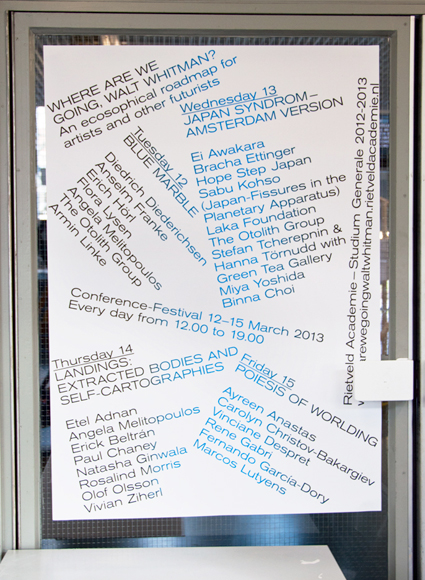 WHERE ARE WE
GOING, WALT WHITMAN?
An ecosophical roadmap for
artists and other futurists
Tuesday 12
BLUE MARBLE
Diedrich Diederichsen
Anselm Franke
Erich Hörl
Flora Lysen
Angela Melitopoulos
The Otolith Group
Armin Linke
Wednesday 13
JAPAN SYNDROM–
AMSTERDAM VERSION
Ei Awakara
Bracha Ettinger
Hope Step Japan
Sabu Kohso
(Japan-Fissures in the
Planetary Apparatus)
Laka Foundation
The Otolith Group
Stefan Tcherepnin &
Hanna Törnudd with
Green Tea Gallery
Miya Yoshida
Binna Choi
Conference-Festival 12–15 March 2013
Every day from 12.00 to 19.00
Thursday 14
LANDINGS:
EXTRACTED BODIES AND
SELF-CARTOGRAPHIES
Etel Adnan
Angela Melitopoulos
Erick Beltrán
Paul Chaney
Natasha Ginwala
Rosalind Morris
Olof Olsson
Vivian Ziherl
Friday 15
POIESIS OF WORLDING
Ayreen Anastas
Carolyn Christov-Bakargiev
Vinciane Despret
Rene Gabri
Fernando García-Dory
Marcos Lutyens
Rietveld Academie–Studium Generale 2012-2013
arewegoingwaltwhitman.rietveldacademie.nl